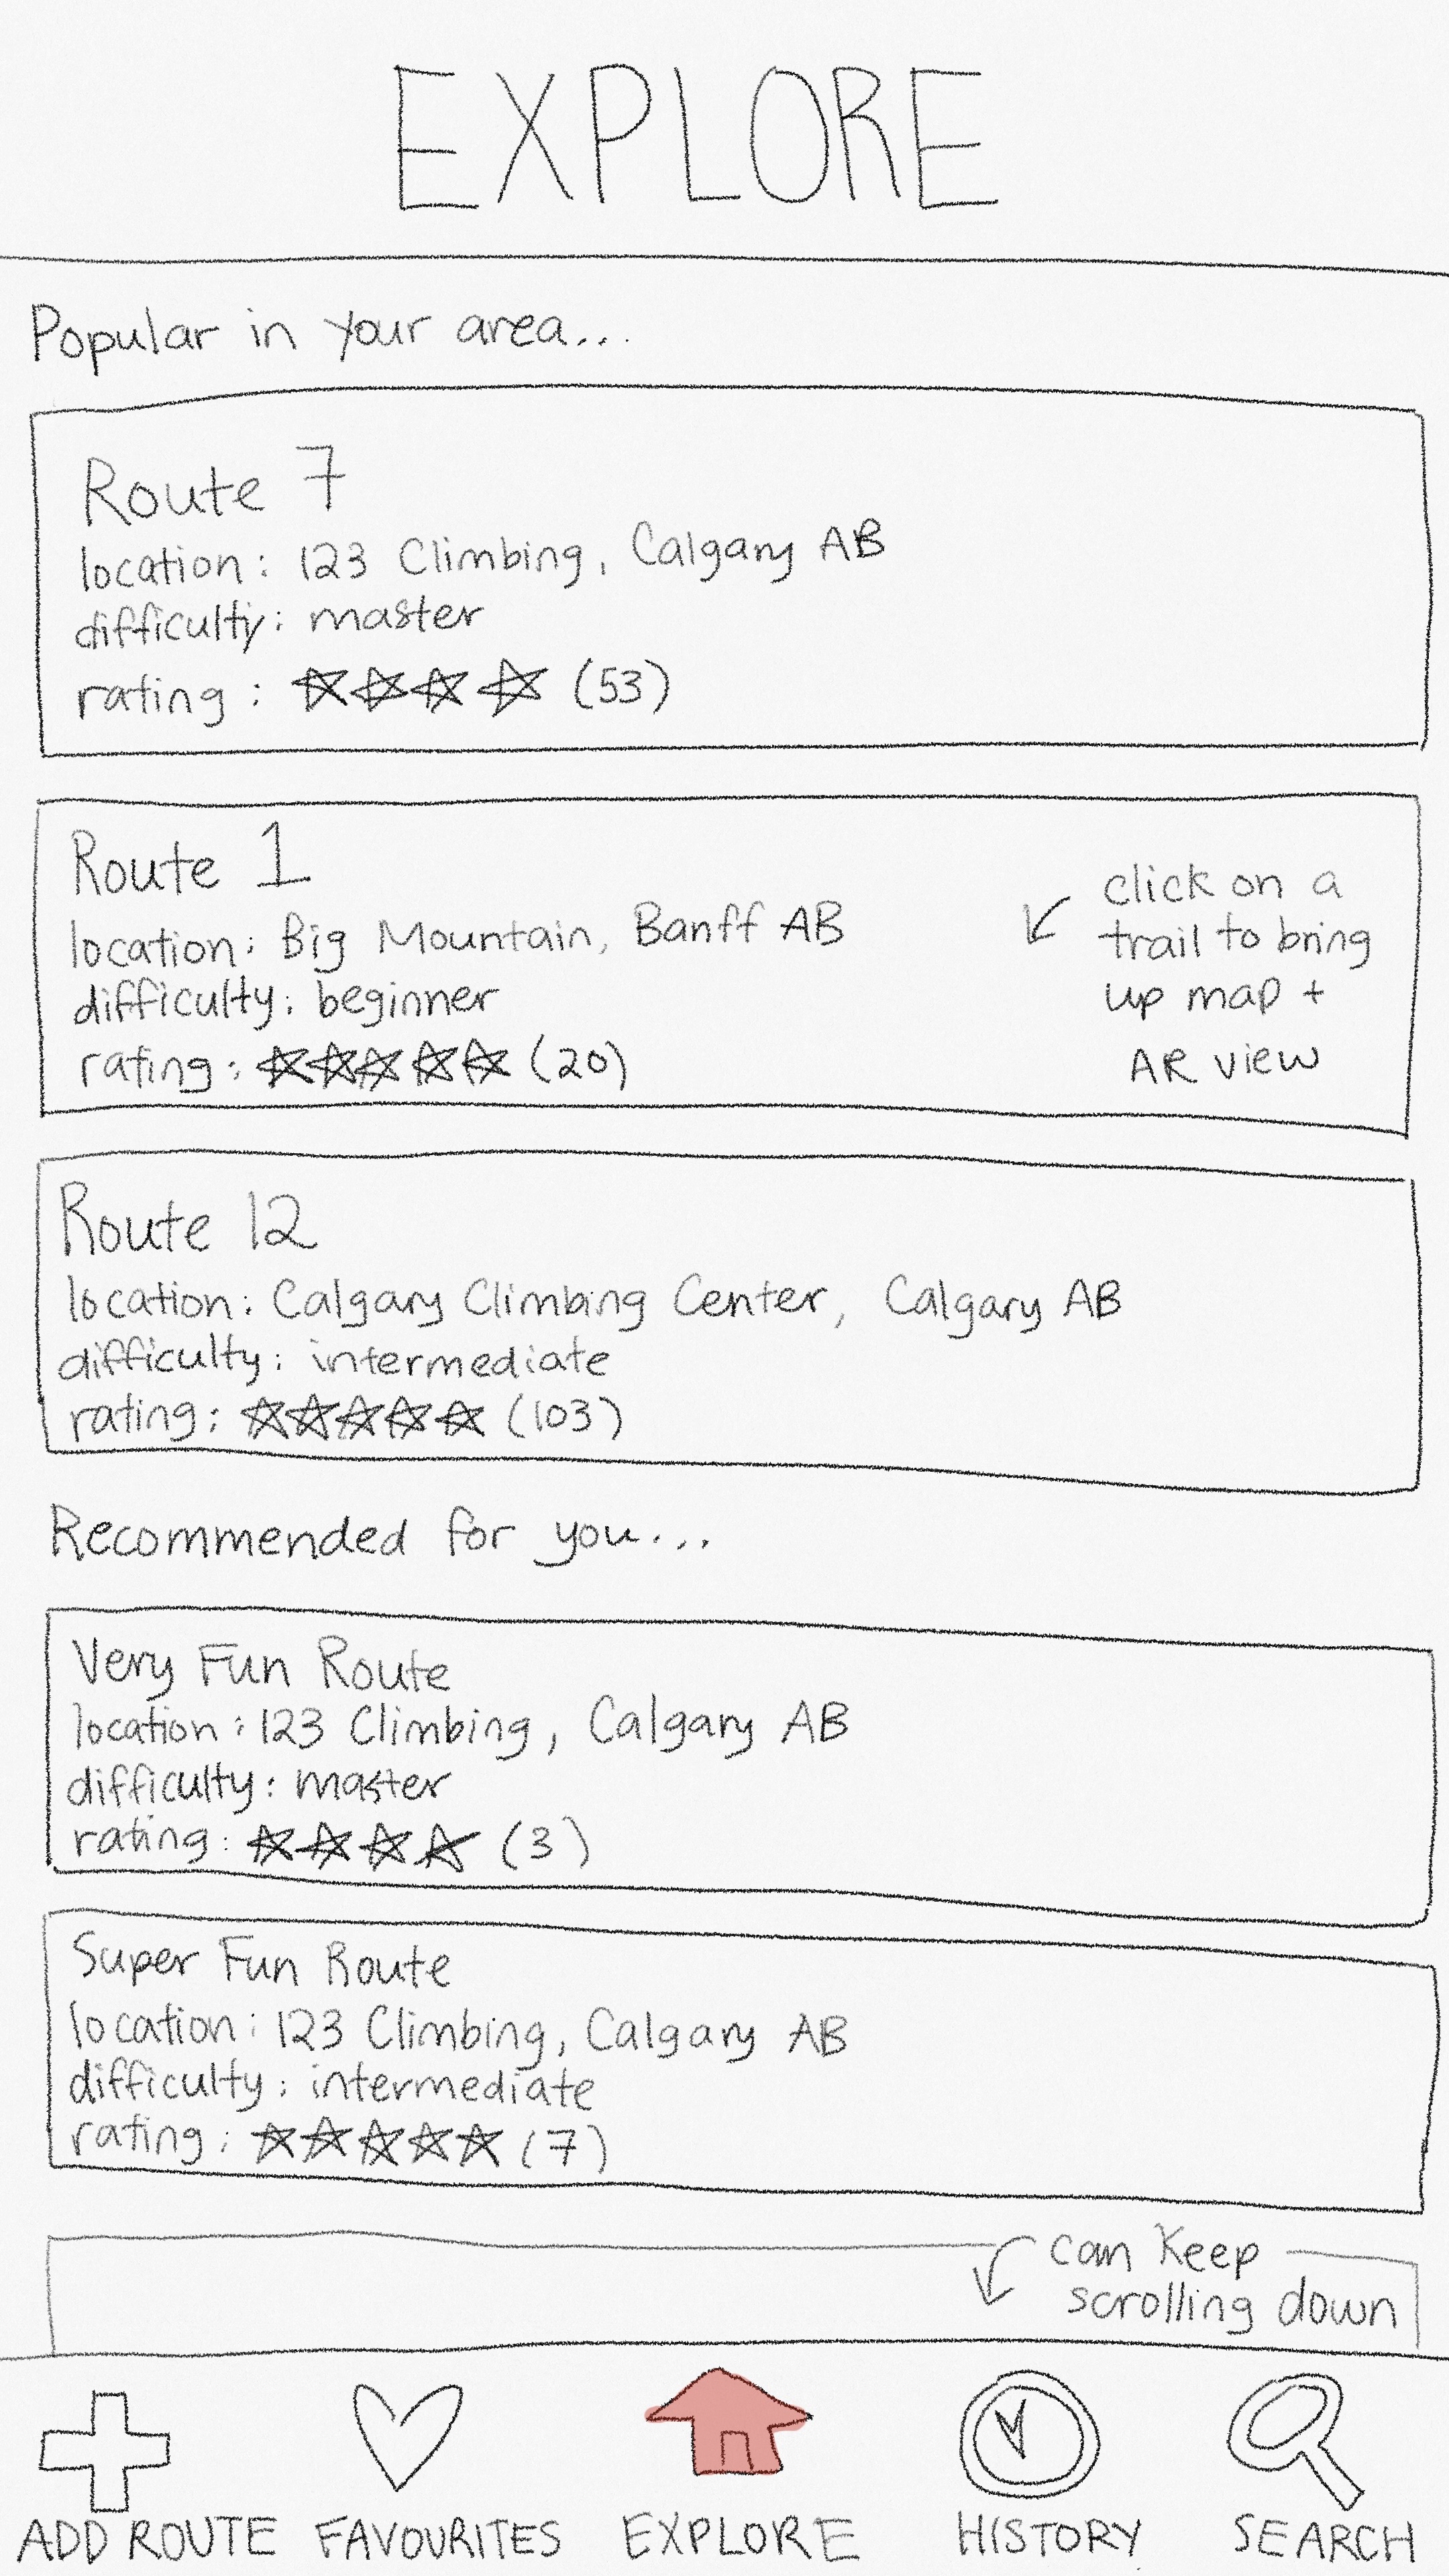 EXPLORE
Popular in your area...
Route 7
location: 123 Climbing, Calgary AB
difficulty: master
rating: (53)
Route 1
location: Big Mountain, Banff AB
difficulty: beginner
rating: (20)
click on a
trail to bring
up map +
AR view
Route 12
location: Calgary Climbing Center, Calgary AB
difficulty: intermediate
rating: (103)
Recommended for you...
Very Fun Route
location: 123 Climbing, Calgary AB
difficulty: master
rating: (3)
Super Fun Route
location: 123 Climbing, Calgary AB
difficulty: intermediate
rating: (7)
can keep
scrolling down
ADD ROUTE FAVOURITES EXPLORE HISTORY SEARCH